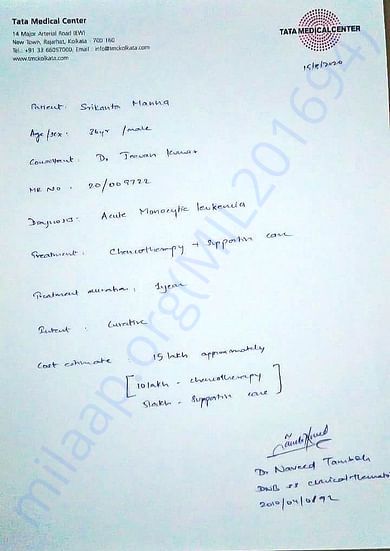 Tata Medical Center
14 Major Arterial Road (EW)
New Town, Rajarhat, Kolkata - 700 160
Tel.: +91 33 66057000, Email : info@tmckolkata.com
www.tmckolkata.com
TATA MEDICAL CENTER
15/8/2020
Patient : Srikanta Manna
Age/sex : 36yr /male
Consultant : Dr Jeevan Kumar
MR No : 20/008722
Diagnosis : Acute Monocytic leukemia
Treatment : Chemotherapy + Supportive care
Treatment duration : 1year
Intent : Curative
Cost estimate : 15 lakh approximately
[10 lakh - chemotherapy
5lakh - supportive care]
Dr Naveed
DNB SS Clinical Hemato
2010/04/0892
milaap.org(MIL201694)